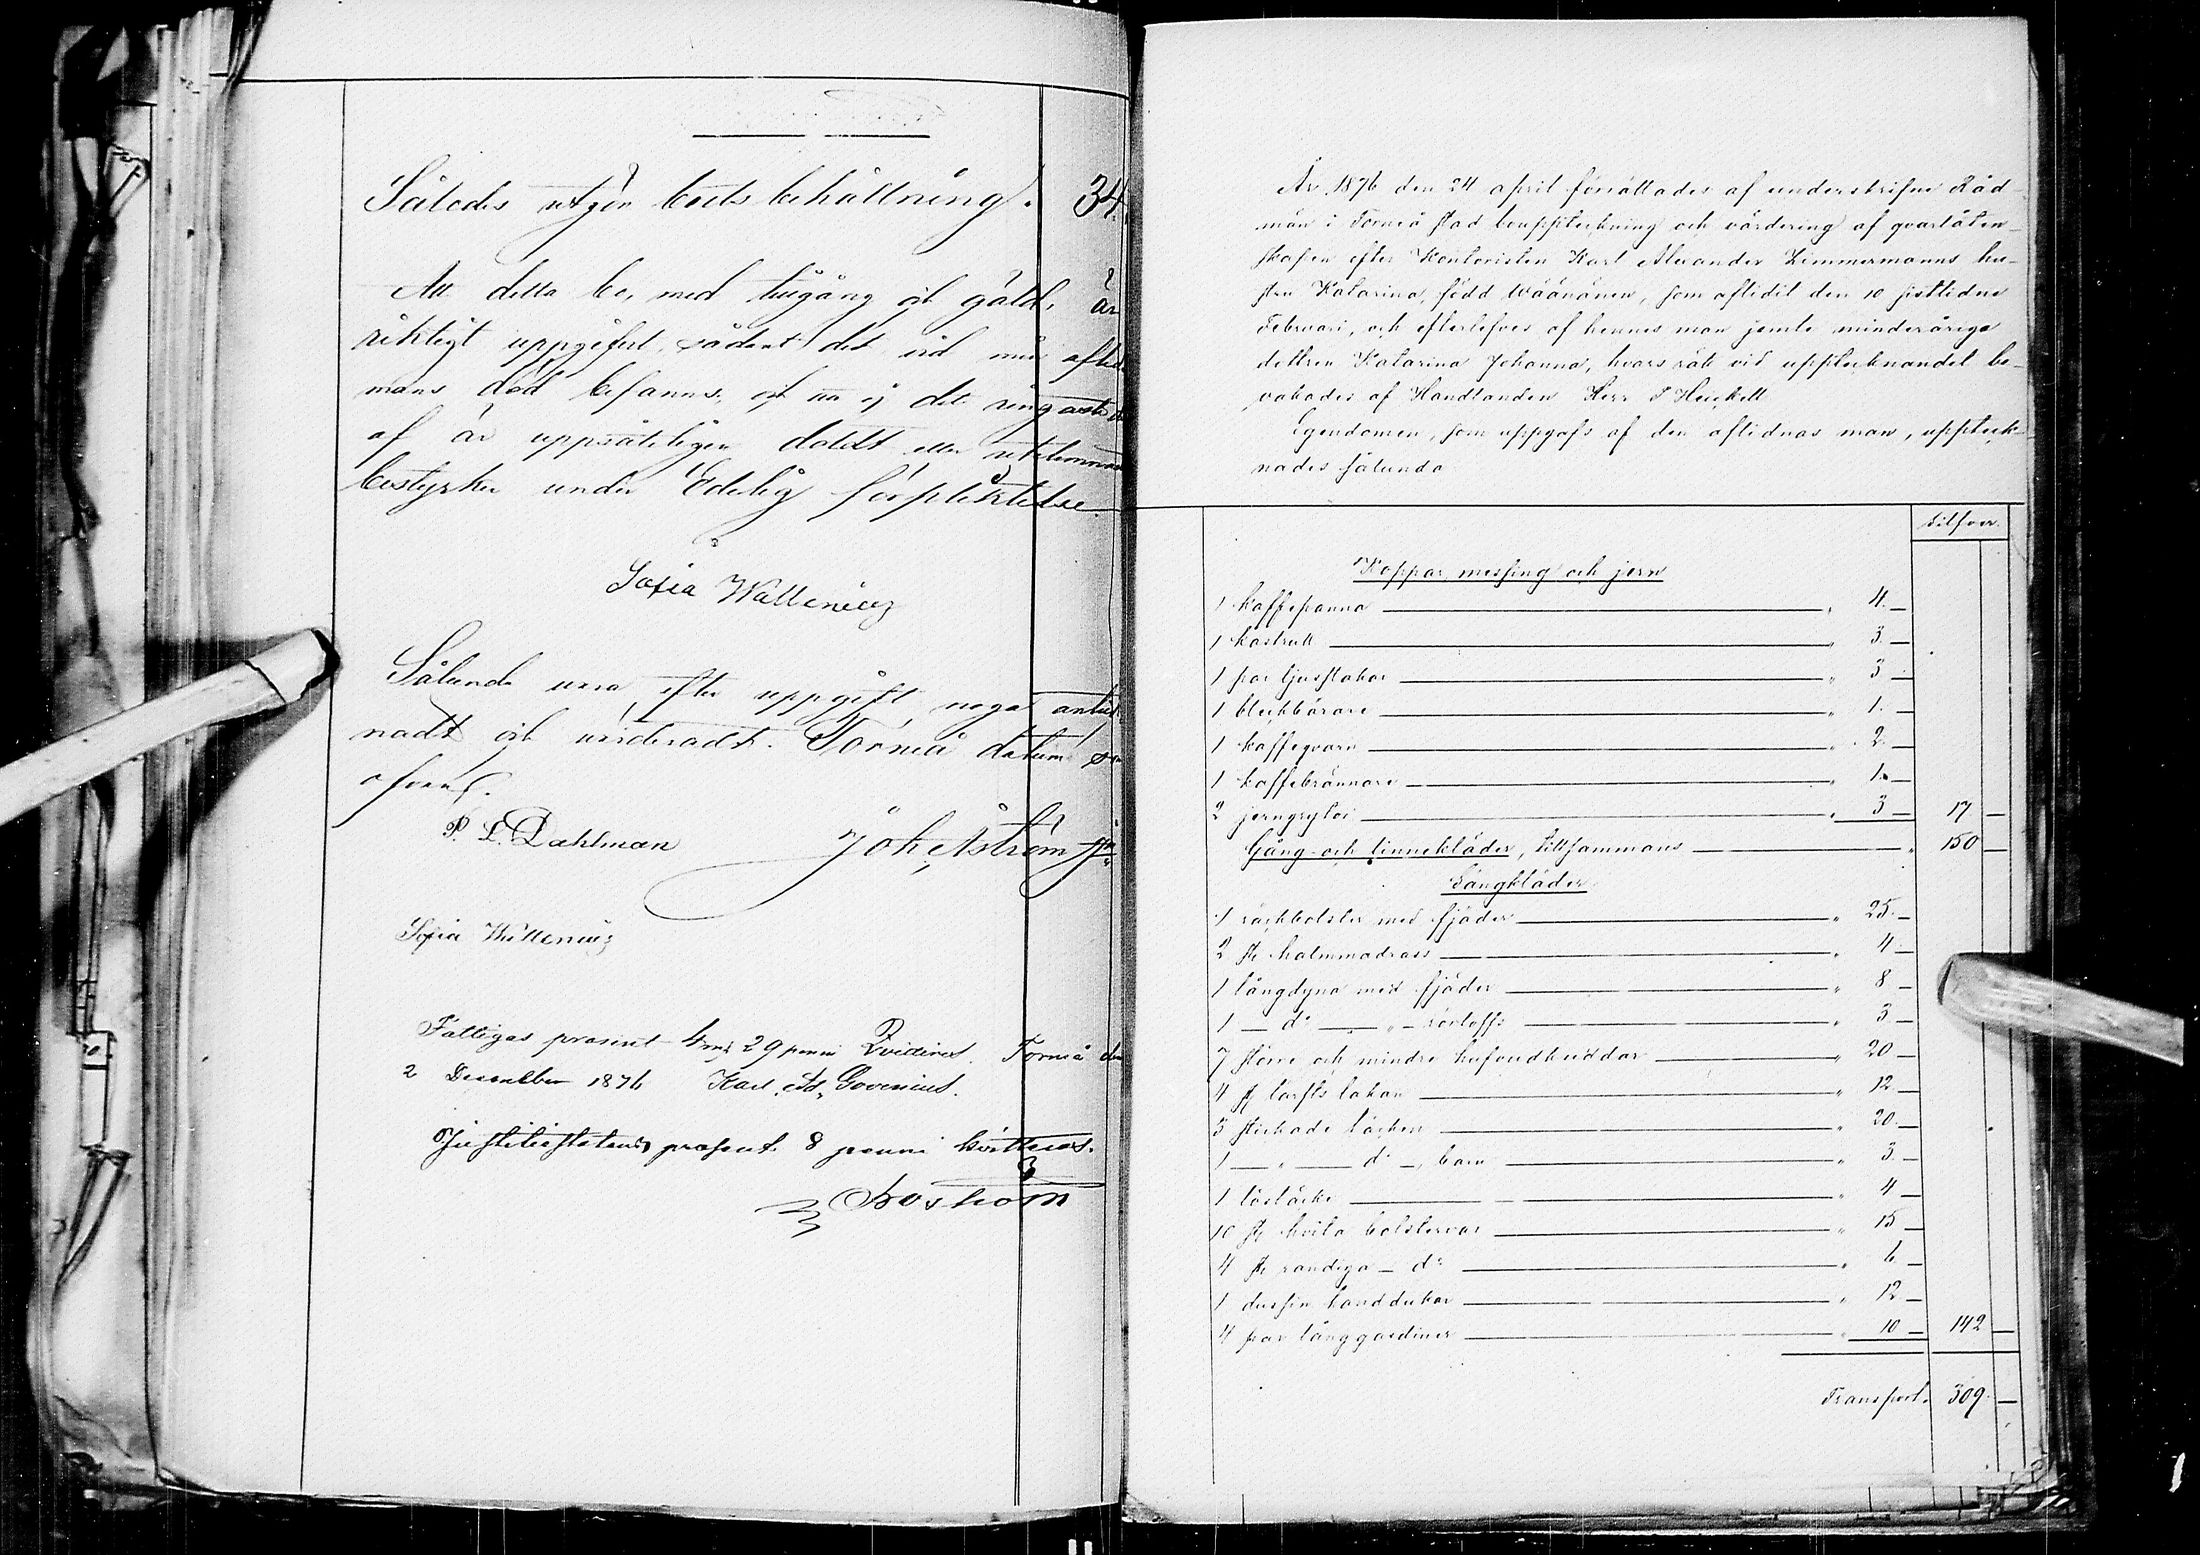 Således utgör boets behållning. 34
Att detta bo, med tillgång och gäld, är
riktigt uppgifvet, sådant det vid min aflidne
mans död befanns, och att ej det ringaste der
af är uppsåteligen doldt eller utelemnadt
bestyrker under Edelig förpliktelse.
Sofia Wallenius
Sålunda vara, efter uppgift, noga anteck
nadt och värderadt. Torneå datum som
ofvan.
P. L. Dahlman Joh. Åström Jn
Sofia Wallenius
Fattigas procent 4 mk 29 penni Qvitteras. Torneå den
2 December 1876 Karl Ad. Govenius.
Justitiæstatens procent 8 penni kvitteras.
Boström
År 1876 den 24 april förrättades af underskrifne Råd-
män i Torneå stad bouppteckning och värdering af qvarlåten-
skapen efter Kontoristen Karl Alexander Zimmermanns hu-
stru Katarina, född Wäänänen, som aflidit den 10 sistlidne
Februari, och efterlefves af hennes man jemte minderåriga
dottren Katarina Johanna, hvars rätt vid upptecknandet be-
vakades af Handlanden Herr P Heickell
Egendomen, som uppgafs af den aflidnas man, uppteck-
nades sålunda
Silfver.
Koppar messing och jern
1 kaffepanna " 4. —
1 kastrull " 3. —
1 par ljusstakar " 3 —
1 bleckbärare " 1. —
1 kaffeqvarn " 2. —
1 kaffebrännare " 1. —
2 jerngrytor " 3 — 17 —
Gång- och linnekläder, tillsammans " 150 —
Sängkläder
1 säckbolster med fjäder " 25. —
2 st halmmadrass " 4 —
1 långdyna med fjäder " 8 —
1 — d:o — " — 3 —
7 större och mindre hufvudkuddar " 20 —
4 st lärfts lakan " 12. —
3 stickade täcken " 20. —
1 — " — d:o —, barn " 3. —
1 täcke " 4 —
10 st hvita bolstervar " 15 —
4 st randiga — d:o " 6 —
1 dussin handdukar " 12 —
4 par långgardiner " 10 — 142 —
Transport. 309. —